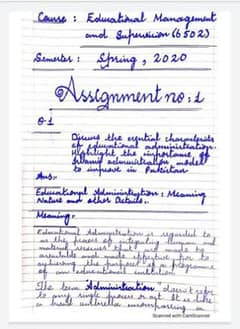 Course : Educational Management
and Supervision (6502)
Semester : Spring, 2020
Assignment no : 1
Q.1
Discuss the essential characteristics
of educational administration.
Highlight the importance of
Islamic administration model
to improve in Pakistan
Ans:-
Educational Administration : Meaning
Nature and other Details..
Meaning:-
Educational Administration is regarded
as the process of integrating
material resources that are made
available and made effective for
achieving the purposes of a programme
of an educational institution
The term Administration doesn't refer
to any single process or act. It is like
a broad umbrella encompassing a
Scanned with CamScanner